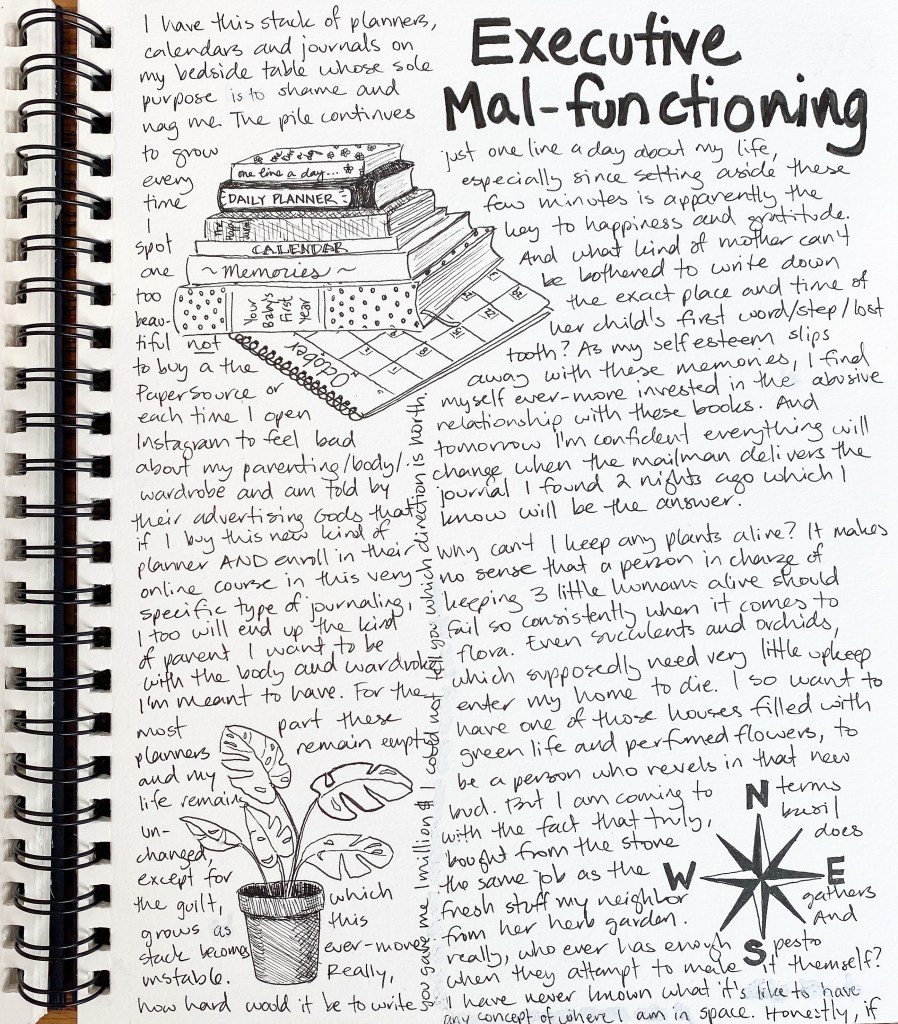 Executive
Mal-functioning
I have this stack of planners,
calendars and journals on
my bedside table whose sole
purpose is to shame and
nag me. The pile continues
to grow
every
time
I
spot
one
too
beau-
tiful not
to buy a the
PaperSource or
each time I open
Instagram to feel bad
about my parenting/body/
wardrobe and am told by
their advertising Gods that
if I buy this new kind of
planner AND enroll in their
online course in this very
specific type of journaling,
I too will end up the kind
of parent I want to be
with the body and wardrobe
I'm meant to have. For the
most part these
planners remain empty
and my
life remains
un-
changed,
except for
the guilt, which
grows as this
stack becomes ever-more
unstable. Really,
how hard would it be to write
one line a day...
DAILY PLANNER
CALENDAR
~ Memories ~
Your
Baby's
First
Year
October
just one line a day about my life,
especially since setting aside these
few minutes is apparently the
key to happiness and gratitude.
And what kind of mother can't
be bothered to write down
the exact place and time of
her child's first word/step/lost
tooth? As my self esteem slips
away with these memories, I find
myself ever-more invested in the abusive
relationship with these books. And
tomorrow I'm confident everything will
change when the mailman delivers the
journal I found 2 nights ago which I
know will be the answer.
Why can't I keep any plants alive? It makes
no sense that a person in charge of
keeping 3 little humans alive should
fail so consistently when it comes to
flora. Even succulents and orchids,
which supposedly need very little upkeep
enter my home to die. I so want to
have one of those houses filled with
green life and perfumed flowers, to
be a person who revels in that new
bud. But I am coming to terms
with the fact that truly, basil
bought from the stone does
the same job as the
fresh stuff my neighbor gathers
from her herb garden. And
really, who ever has enough pesto
when they attempt to make it themself?
I have never known what it's like to have
any concept of where I am in space. Honestly, if
you gave me 1million $ I could not tell you which direction is north.
N
W E
S